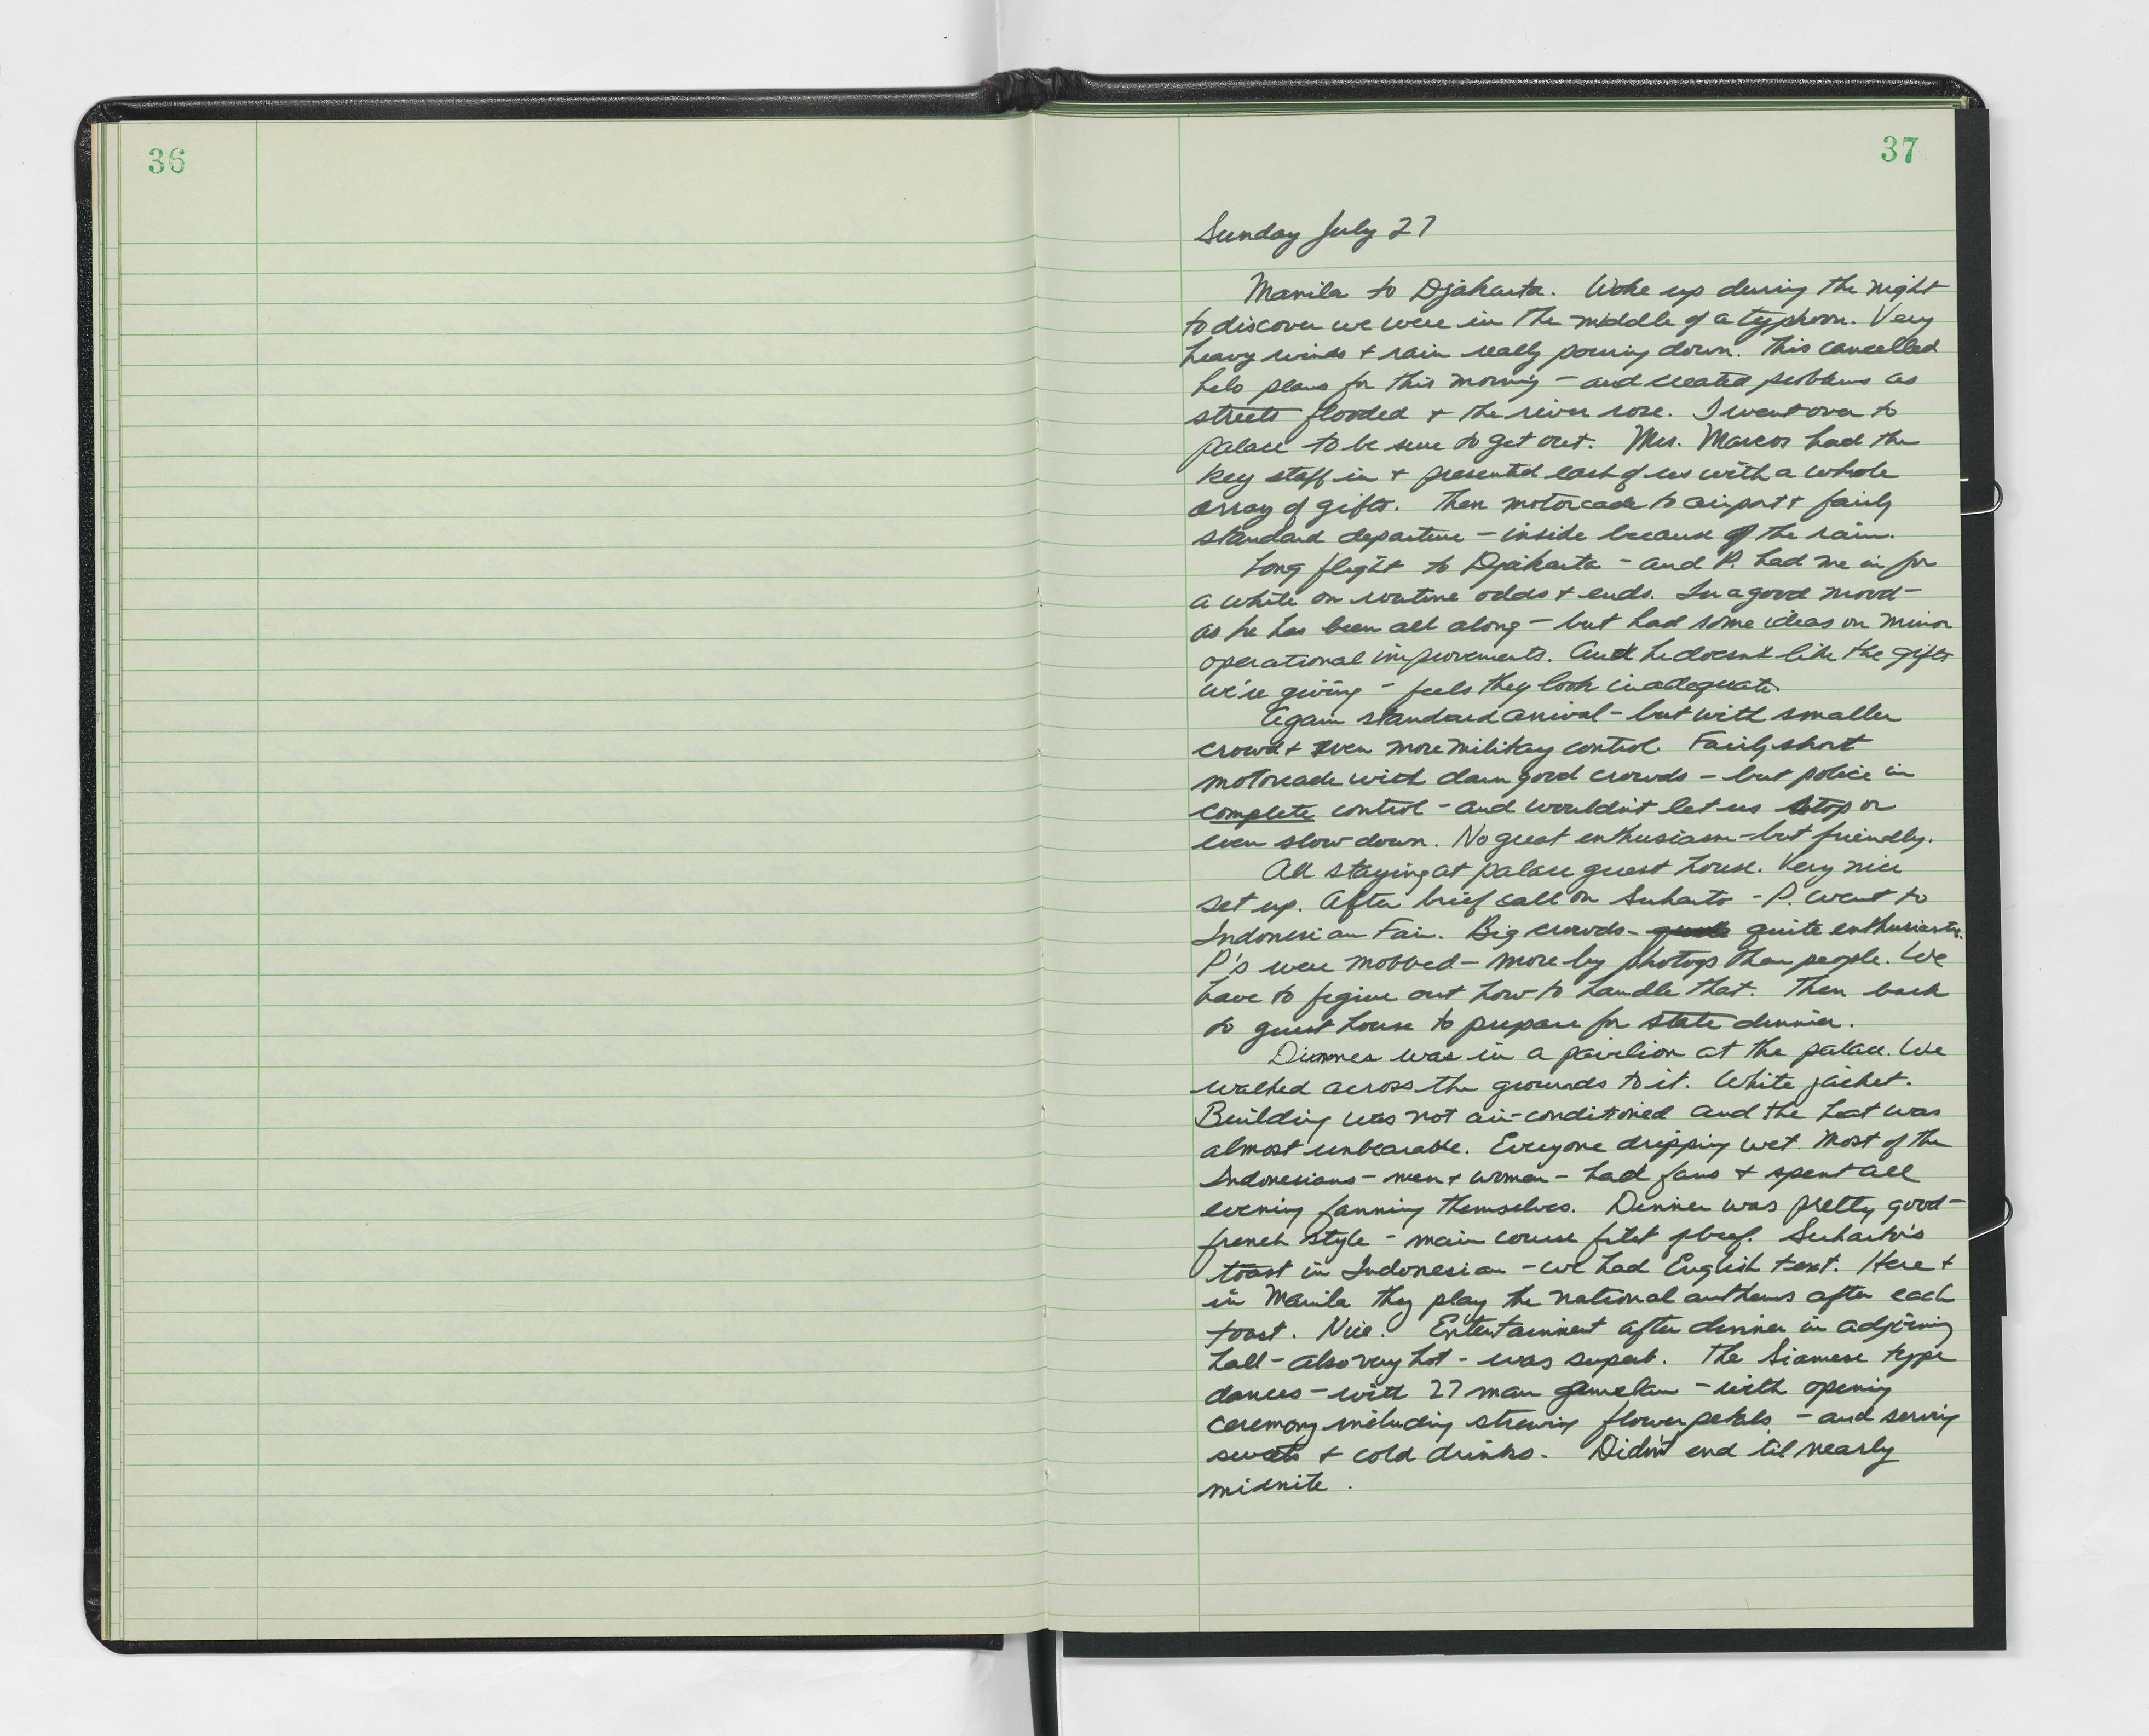 36
37
Sunday July 27
Manila to Djakarta. Woke up during the night
to discover we were in the middle of a typhoon. Very
heavy winds + rain really pouring down. This cancelled
helo plans for this morning - and created problems as
streets flooded + the river rose. I went over to
palace to be sure to get out. Mrs. Marcos had the
key staff in + presented each of us with a whole
array of gifts. Then motorcade to airport + fairly
standard departure - inside because of the rain.
Long flight to Djakarta - and P. had me in for
a while on routine odds + ends. In a good mood -
as he has been all along - but had some ideas on minor
operational improvements. And he doesn't like the gifts
we're giving - feels they look inadequate.
Again standard arrival - but with smaller
crowd + even more military control. Fairly short
motorcade with damn good crowds - but police in
complete control - and wouldn't let us stop or
even slow down. No great enthusiasm - but friendly.
All staying at palace guest house. Very nice
set up. After brief call on Suharto - P. went to
Indonesian Fair. Big crowds - quite enthusiastic.
P's were mobbed - more by photogs than people. We
have to figure out how to handle that. Then back
to guest house to prepare for state dinner.
Dinner was in a pavilion at the palace. We
walked across the grounds to it. White jacket.
Building was not air-conditioned and the heat was
almost unbearable. Everyone dripping wet. Most of the
Indonesians - men + women - had fans + spent all
evening fanning themselves. Dinner was pretty good -
french style - main course filet of beef. Suharto's
toast in Indonesian - we had English text. Here +
in Manila they play the national anthems after each
toast. Nice. Entertainment after dinner in adjoining
hall - also very hot - was superb. The Siamese type
dances - with 27 man gamelan - with opening
ceremony including strewing flower petals - and serving
sweets + cold drinks. Didn't end til nearly
midnite.